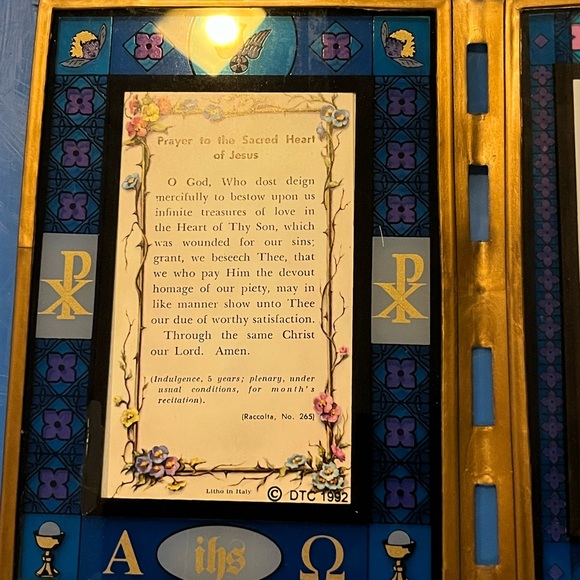 Prayer to the Sacred Heart
of Jesus
O God, Who dost deign
mercifully to bestow upon us
infinite treasures of love in
the Heart of Thy Son, which
was wounded for our sins;
grant, we beseech Thee, that
we who pay Him the devout
homage of our piety, may in
like manner show unto Thee
our due of worthy satisfaction.
Through the same Christ
our Lord. Amen.
(Indulgence, 5 years; plenary, under
usual conditions, for month's
recitation).
(Raccolta, No. 265)
Litho in Italy
© DTC 1992
Α ihs Ω